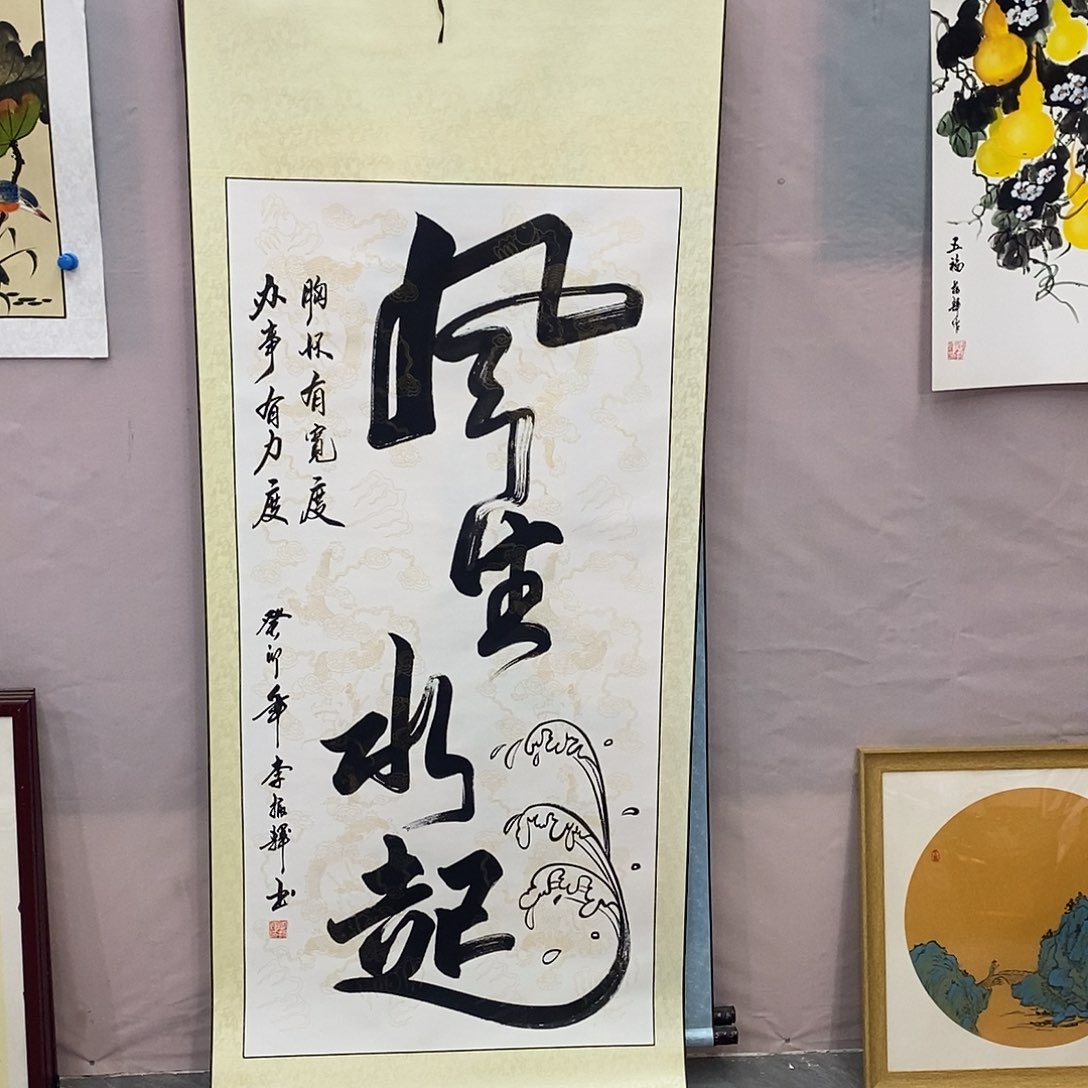 风生水起
胸怀有宽度
办事有力度
癸卯年 李振辉书
五福 振辉作